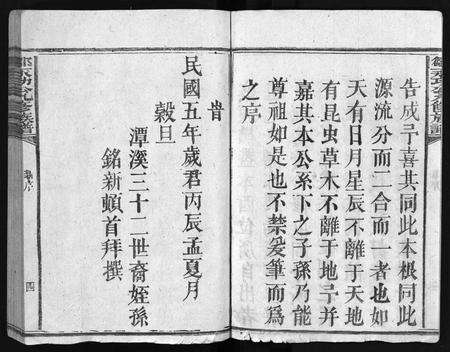 告成予喜其同此本根同此
源流分而二合而一者也如
天有日月星辰不離于天地
有昆虫草木不離于地予并
嘉其本公系下之子孫乃能
尊祖如是也不禁爰筆而爲
之序
旹
民國五年歲君丙辰孟夏月
穀旦
潭溪三十二世裔姪孫
銘新頓首拜撰
四